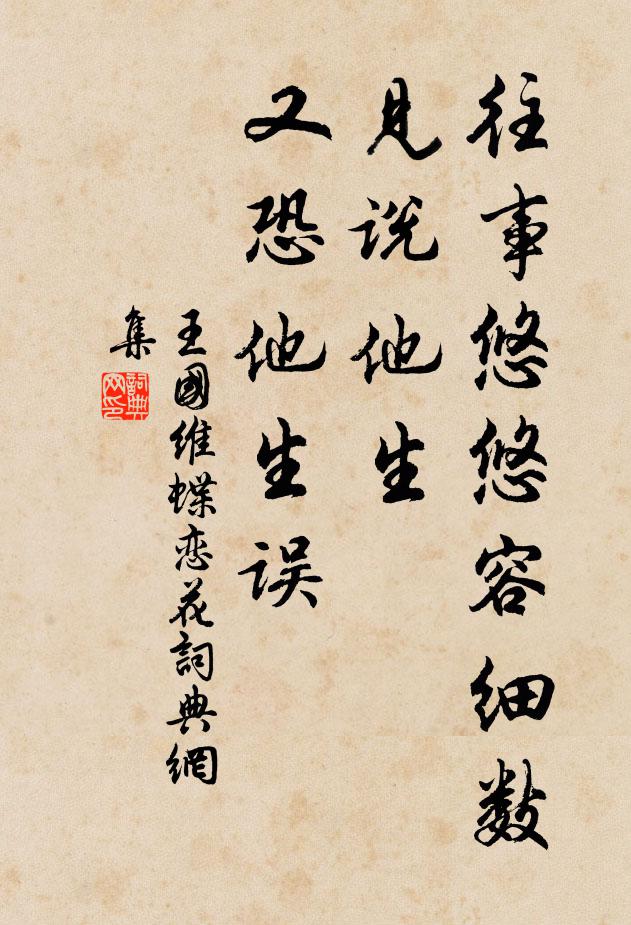 往事悠悠容细数
见说他生
又恐他生误
王國维蝶恋花詞典網
集
詞典
网印